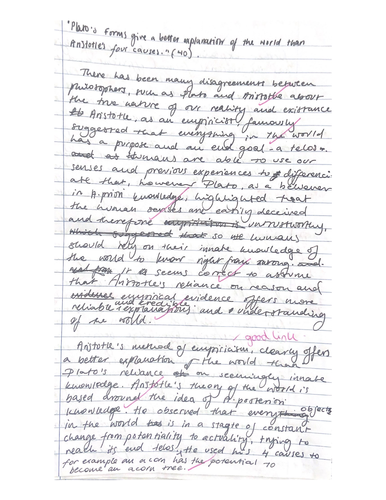 "Plato's Forms give a better explanation of the world than
Aristotle's four causes." (40)
There has been many disagreements between
philosophers, such as Plato and Aristotle about
the true nature of our reality and existance
Aristotle, as an empiricist famously
suggested that everything in the world
has a purpose and an end goal - a telos.
Humans are able to use our
senses and previous experiences to differenci
ate that, however Plato, as a believer
in A priori knowledge, highlighted that
the human senses are entirley decieved
and therefore untrustworthy,
so humans
should rely on their innate knowledge of
the world to know right from wrong.
It seems correct to assume
that Aristotle's reliance on reason and
empyrical evidence offers more
reliable and credible explanations and understanding
of the world.
good link
Aristotle's method of empiricism, clearly offers
a better explanation of the world than
Plato's reliance on seemingly innate
knowledge. Aristotle's theory of the world is
based around the idea of A posteriori
knowledge. He observed that every objects
in the world is in a stagte of constant
change from potentiality to actuality, trying to
reach its end telos, He used his 4 causes to
for example an acorn has the potential to
become an acorn tree.